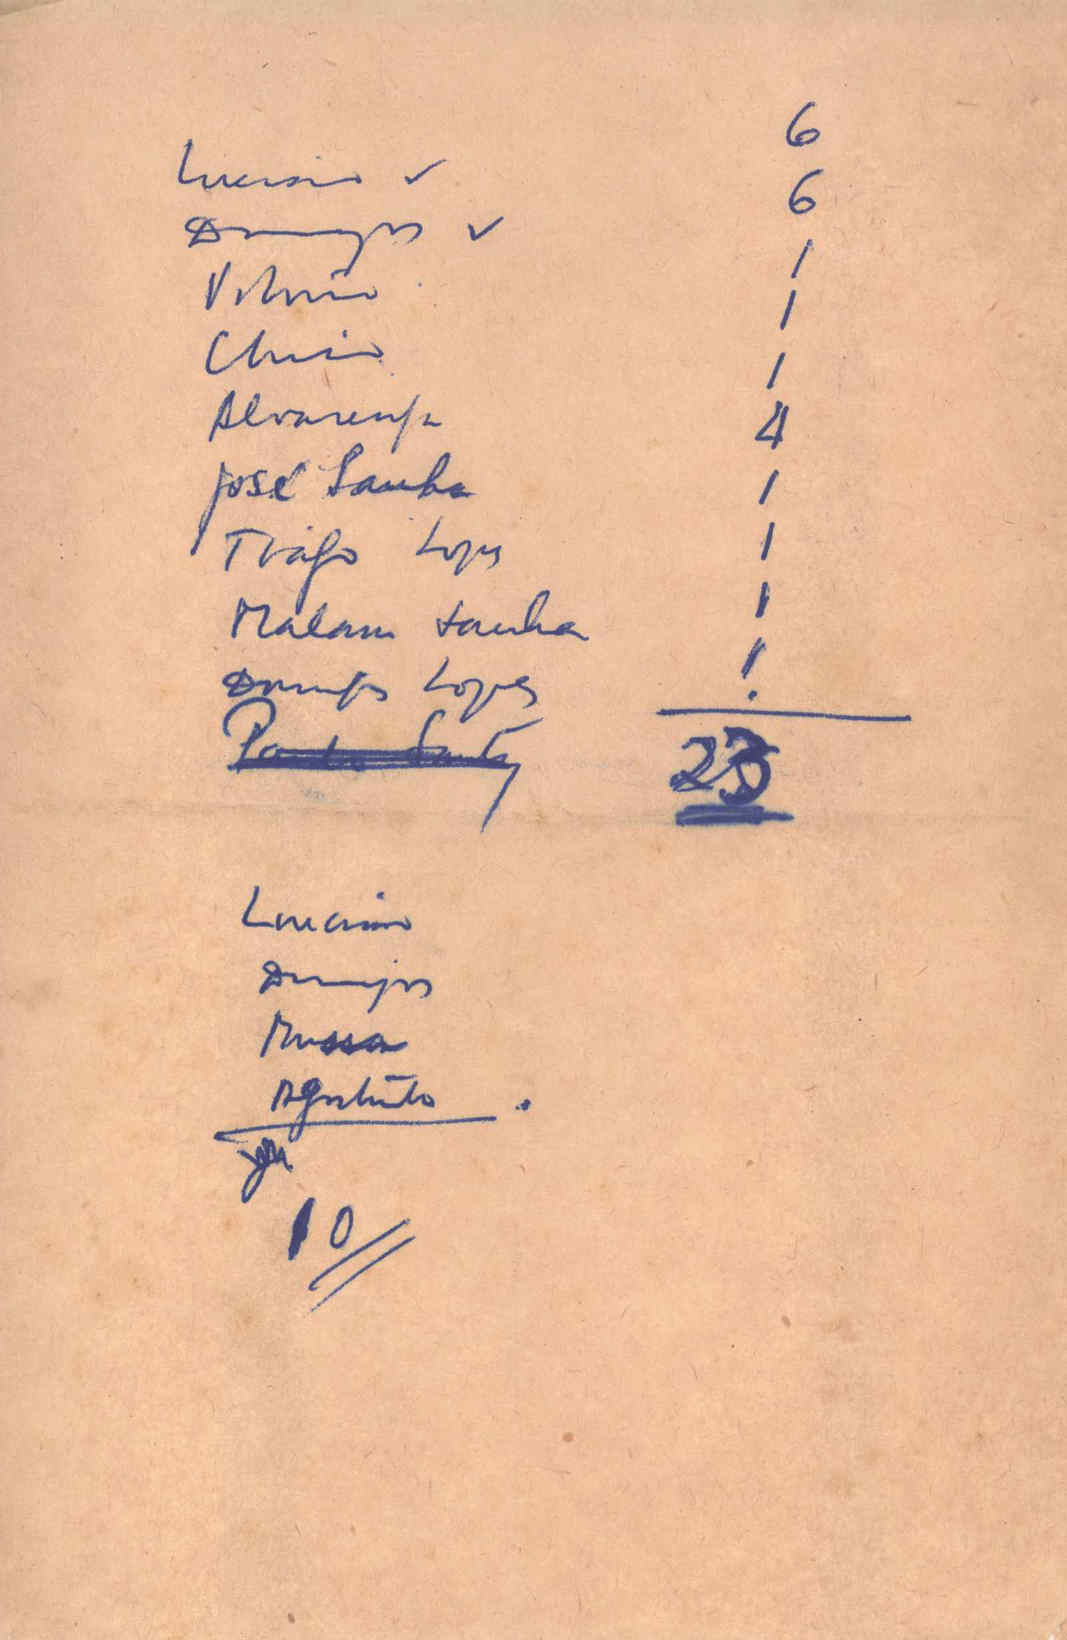 6
Luciano ✓
6
Domingos ✓
1
Vitorino
1
Chico
1
Alvarenga
4
José Sanha
1
Tiago Lopes
1
Malam Sanha
1
Domingos Lopes
1
23
Luciano
Domingos
Mussa
Agostinho
10